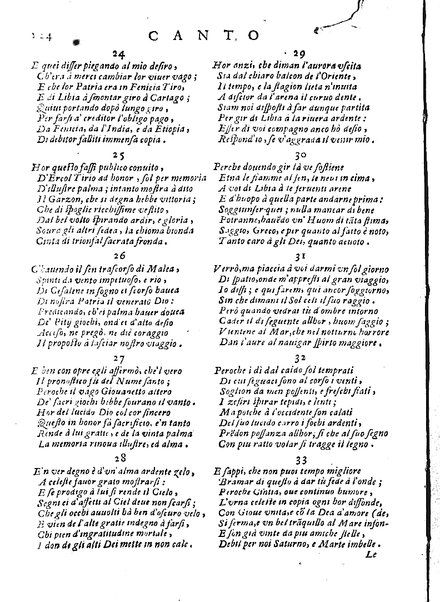 124 CANTO
24
E quei differ piegando al mio desiro,
Ch'era à merci cambiar lor viuer vago;
E che lor Patria era in Fenicia Tiro,
E di Libia à smontar giro à Cartago;
Quiui portando dopo lungo giro,
Per farsi à creditor l'obligo pago,
Da Fenicia, da l'India, e da Etiopia,
Di debitor falliti immensa copia.
25
Hor questo fassi publico conuito,
D'Ercol Tirio ad honor, sol per memoria
D'illustre palma; intanto mostra à dito
Il Garzon, che si degna hebbe vittoria;
Che di spoglie ricchissime vestito,
Dal bel volto spirando ardir, e gloria,
Soura gli altri sedea, la chioma bionda
Cinta di trionfal sacrata fronda.
26
C'hauendo il sen trascorso di Malea,
Spinti da vento impetuoso, e rio,
Di Cesalene in sogno ci scorso hauea
Di nostra Patria il venerato Dio:
Predicendo, ch'ei palma hauer douea
De' Pity giochi, ond'ei d'alto desio
Acceso, ne pregò, ne diè coraggio
Il proposto à lasciar nostro viaggio.
27
E ben con opre egli affirmò, che'l vero
Il pronostico fù del Nume santo;
Peroche il vago Giouanetto altero
De' sacri giochi hebbe sourano il vanto.
Hor del lucido Dio col cor sincero
Questo in honor fà sacrificio, e'n tanto
Rende à lui gratie, e de la vinta palma
La memoria rinoua illustre, ed alma.
28
E'n ver degno è d'un'alma ardente zelo,
A celeste fauor grato mostrarsi:
E se prodigo à lui si rende il Cielo,
Segni ei d'affetti al Ciel deue non scarsi;
Che gli occhi auuolti hà ben d'oscuro velo,
E vien de l'alte gratie indegno à farsi,
Chi pien d'ingratitudine mortale,
I don di gli alti Dei mette in non cale.
29
Hor anzi, che diman l'aurora vscita
Sia dal chiaro balcon de l'Oriente,
Il tempo, e la stagion lieta n'inuita
A discior da l'arena il curuo dente.
Siam noi disposti à far dunque partita
Per gir di Libia à la riuera ardente:
Esser di voi compagno anco hò desio,
Respond'io, se v'aggrata il venir mio.
30
Perche douendo gir là ve sostiene
Etna le fiamme al sen, le neui in cima,
A voi di Libia à le feruenti arene
E d'huopo à quella parte andarne prima:
Soggiunser quei; nulla mancar di bene
Potranni, hauendo vn'Huom di tāta stima,
Saggio, Greco, e per quanto al fatto è noto,
Tanto caro à gli Dei, quanto deuoto.
31
Verrò, ma piaccia à voi darmi vn sol giorno
Di spatio, onde m'appresti al gran viaggio,
Io dissi; e qui faremi, che ancor soggiorno,
Sin che dimani il Sol celi il suo raggio.
Però quando vedrai tù d'ombre intorno
Cader il dì seguente allhor, buom saggio;
V'untene al lido, che nel notturno horrore
Dan l'aure al nauigar spirto maggiore.
32
Peroche i dì dal caldo sol temprati
Di cui seguaci sono al corso i venti,
Soglion da men possenti, e fresch i fiati,
I Zefiri spirar tepidi, e lenti;
Ma poiche à l'occidente son calati
Del suo lucido carro i focbi ardenti,
Prēdon possanza allhor, si che al suo segno
Con piu ratto volar si tragge il legno.
33
E sappi, che non puoi tempo migliore
Bramar di questo à dar tù fede à l'onde;
Peroche Cinthia, oue continuo humore,
L'vrna celeste in copia ogni hor diffonde,
Con Gioue vnita, e cō la Dea d'amore (de,
Si ferma, e vn bel trāquillo al Mare infon-
E son già vinte da piu amiche stelle,
Debil per noi Saturno, e Marte imbelle.
Le